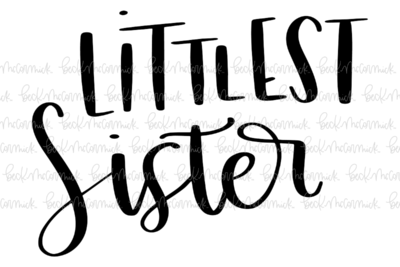 LiTTLEST
Sister